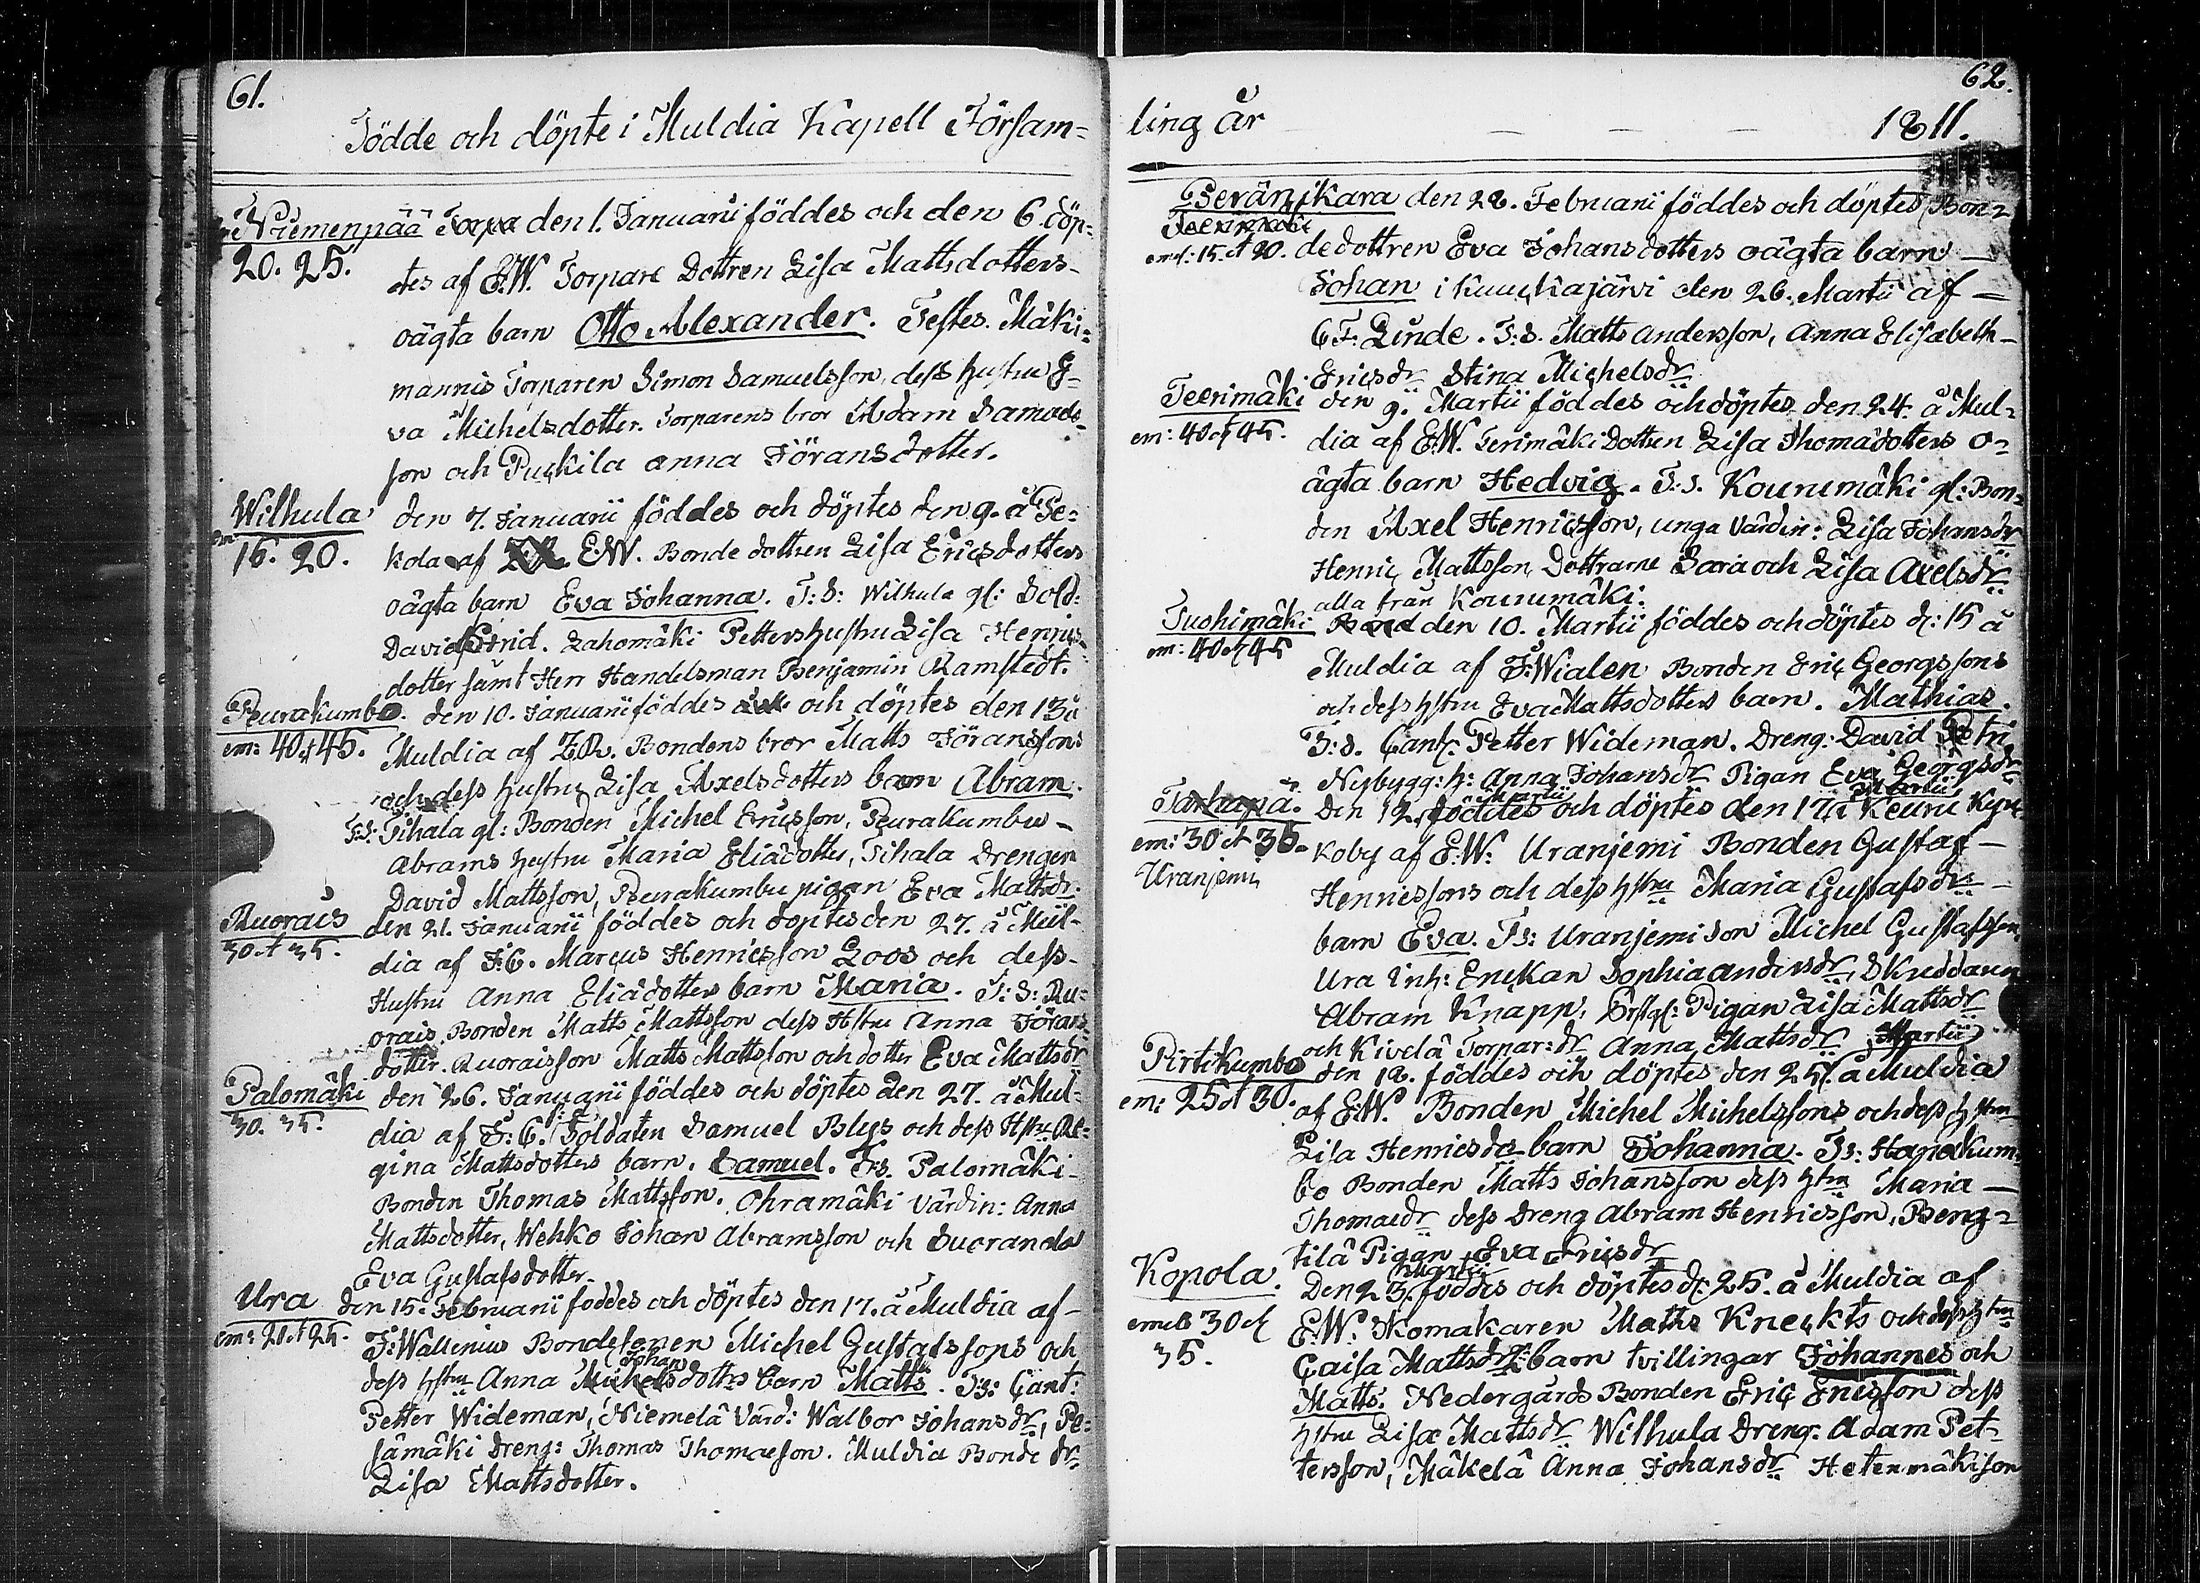 61.
Födde och döpte i Muldia Kapell Försam=
Niemenpää Torpa den 1. Januarii föddes och den 6. döp-
20. 25.
tes af E.W. Torpare Dottren Lisa Mattsdotters
oägta barn Otto Alexander. Testes. Mäki=
mannis Torparen Simon Samuelsson, dess hustru E-
va Michelsdotter. Torparens bror Adam Samuels-
son och Puckila Anna Jöransdotter.
Wilhula den 7. Januarii föddes och döptes den 9. å Pe=
em 15. 20. kola af E.W. Bonde dottren Lisa Ericsdotters
oägta barn Eva Johanna. T:s: Wilhula gl: Sold:
David Lahomäki Petters hustru Lisa Henrics
dotter samt Herr Handelsman Benjamin Ramstedt.
Peurakumbo. den 10. Januarii föddes och döptes den 13 å
em: 40 et 45. Muldia af Z.R. Bondens bror Matts Jöranssons
och dess hustru Lisa Axelsdotters barn Abram.
T:s: Tihala gl: Bonden Michel Ericsson, Peurakumbu-
Abrams hustru Maria Eliædotter, Tihala Drengen
David Mattsson, Peurakumbu pigan Eva Mattsdr.
Ruorais den 21. Januarii föddes och döptes den 27. å Mul-
30 et 35.
dia af F.C. Marcus Henricsson Loos och dess
Hustru Anna Eliædotters barn Maria. T:s: Ru=
orais Bonden Matts Mattsson dess Hstru Anna Jörans
dotter. Ruoraisson Matts Mattsson och dotter Eva Mattsdr
Palomäki den 26. Januarii föddes och döptes den 27. å Mul-
30. 35.
dia af F:C. Soldaten Samuel Blys och dess Hstru Re-
gina Mattsdotters barn. Samuel. T:s. Palomäki-
Bonden Thomas Mattsson. Ohramäki Värdin: Anna
Mattsdotter, Wehko Johan Abramsson och Suoranda
Eva Gustafsdotter.
Ura den 15. Februarii föddes och döptes den 17. å Muldia af-
em: 20 et 25.
F:Wallenius Bondesonen Michel Gustafssons och
Johan
dess hstru Anna Michelsdotters barn Matts. T:s: Cant:
Petter Wideman, Niemelä Värd: Walbor Johansdr, Pe-
jämäki Dreng: Thomas Thomæson. Muldia Bonde dr.
Lisa Mattsdotter.
62.
ling år — — — 1811.
Peränikara den 22. Februarii föddes och döptes Bon=
Teerimäki
em: 15 et 20. dedottren Eva Johansdotters oägta barn —
Johan i Kuuckajärvi den 26. Martii af —
C.F. Linde. T:s. Matts Andersson, Anna Elisabeth-
Ericsdr Stina Michelsdr
Teerimäki den 9. Martii föddes och döptes den 24. å Mul=
em: 40 et 45.
dia af E.W. Terimäki Dottren Lisa Thomædotters o=
ägta barn Hedvig. T:s. Kourumäki gl: Bon=
den Axel Henricsson, unga Värdin: Lisa Johansdr
Henric Mattsson Dottrarne Saria och Lisa Axelsdr
alla från Kourumäki.
Tuohimäki den 10. Martii föddes och döptes d: 15 å
em: 40 et 45
Muldia af F.Wialen Bonden Eric Georgssons
och dess hstru Eva Mattsdotters barn. Mathias.
T:s. Cant: Petter Wideman. Dreng: David Petri
Nybygg: h: Anna Johansdr Pigan Eva Georgsdr
Martii
Tarhapä. den 12. föddes och döptes den 17 å Keuru Kyr
em: 30 et 35.
koby af E.W. Uranjemi Bonden Gustaf —
Uranjemi
Henricssons och dess hstru Maria Gustafsdrs —
barn Eva. T:s: Uranjemi son Michel Gustafsson,
Ura Inh: Enckan Sophia Andersdr, Skreddaren
Abram Knapp, Pigan Lisa Mattsdr
och Kivelä Torpar: dr Anna Mattsdr
Martii
Pirtikumbo den 18. föddes och döptes den 25. å Muldia
em: 25 et 30.
af E.W. Bonden Michel Michelssons och dess hstru
Lisa Henricsdrs barn Johanna. T:s: Hapakum
bo Bonden Matts Johansson dess hstru Maria —
Thomædr dess Dreng Abram Henricsson, Beng=
tilä Pigan Eva Ericsdr
Martii
Kopola. Den 23. föddes och döptes d: 25. å Muldia af
em: 30 et
35.
E.W. Skomakaren Matts Kneckts och dess hstru
Caisa Mattsdrs barn tvillingar Johannes och
Matts. Nedergårds Bonden Eric Ericsson dess
hstru Lisa Mattsdr Wilhula Dreng: Adam Pet-
tersson, Mäkelä Anna Johansdr Hetenmäki son